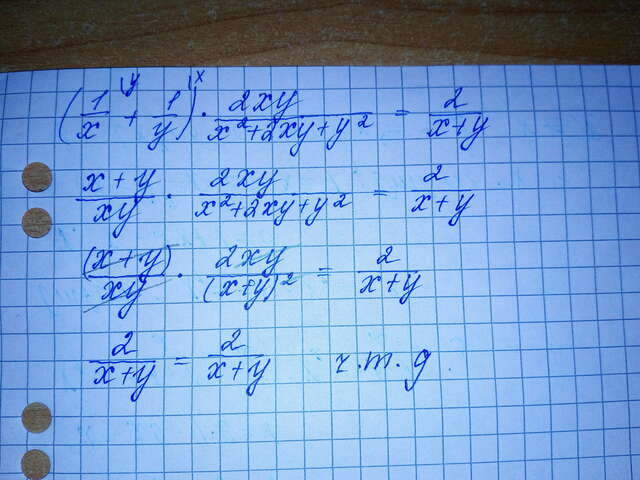 (1/x + 1/y) · 2xy/(x²+2xy+y²) = 2/(x+y)
(x+y)/(xy) · 2xy/(x²+2xy+y²) = 2/(x+y)
(x+y)/(xy) · 2xy/(x+y)² = 2/(x+y)
2/(x+y) = 2/(x+y) ч.т.д